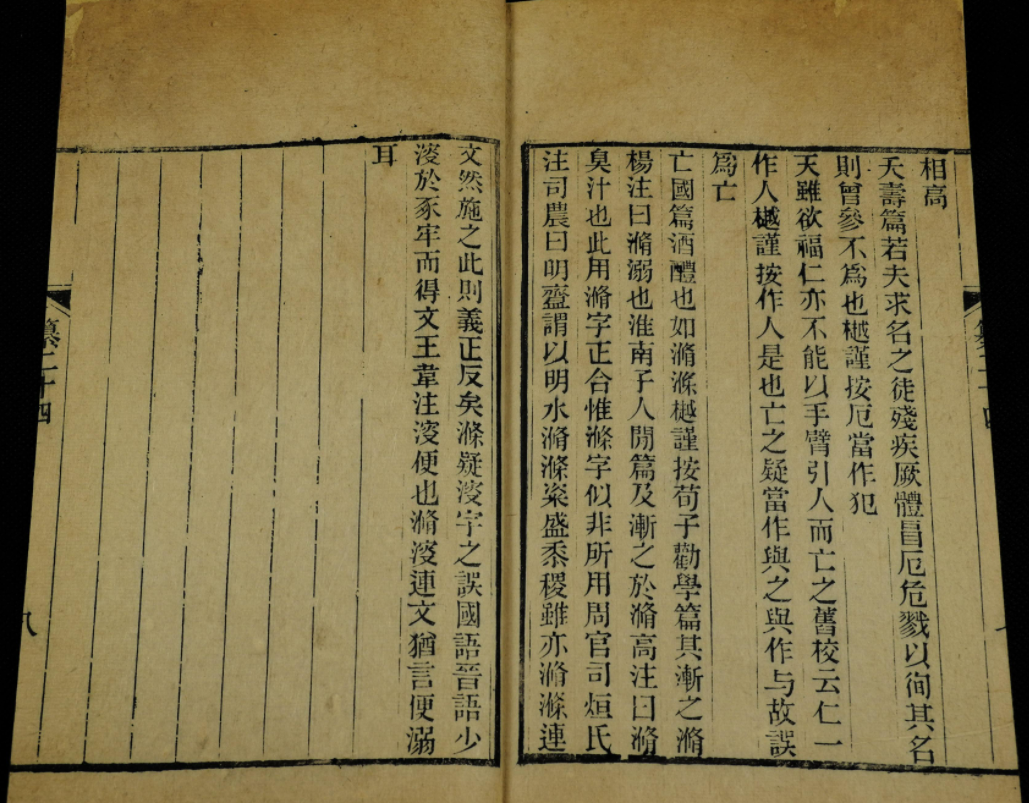 相高
夭壽篇若夫求名之徒殘疾厥體冒厄危戮以徇其名
則曾參不爲也樾謹按厄當作犯
天雖欲福仁亦不能以手臂引人而亡之舊校云仁一
作人樾謹按作人是也亡之疑當作與之與作与故誤
爲亡
亡國篇酒醴也如滫滌樾謹按荀子勸學篇其漸之滫
楊注曰滫溺也淮南子人閒篇及漸之於滫高注曰滫
臭汁也此用滫字正合惟滌字似非所用周官司烜氏
注司農曰明齍謂以明水滫滌粢盛黍稷雖亦滫滌連
文然施之此則義正反矣滌疑涭字之誤國語晉語少
涭於豕牢而得文王韋注涭便也滫涭連文猶言便溺
耳
纂二十四
八